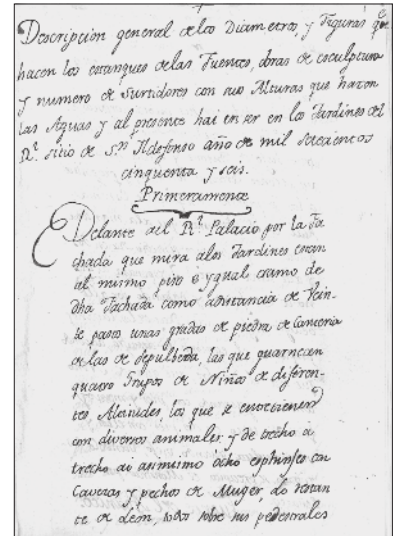 Descripción general delos Diametros, y Figuras qe
hacen los estanques delas Fuentes, obras de esculptura
y numero de surtidores con sus Alturas que hacen
las Aguas y al presente hai en ser en los Jardines del
Rl. sitio de Sn. Ildefonso año de mil setecientos
cinquenta y seis.
Primeramente
Delante del Rl. Palacio por la fa
chada que mira alos Jardines estan
al mismo piso e ygual tramo de
dha fachada como adistancia de Vein-
te pasos unas gradas de piedra de Canteria
de las de sepulbeda, las que guarnecen
quatro Grupos de Niños de diferen-
tes Aptitudes, los que se entretienen
con diversos animales, y de trecho a
trecho ai asimismo ocho esphinses con
Caveras y pechos de Muger, lo restan
te de Leon, todo sobre sus pedestrales